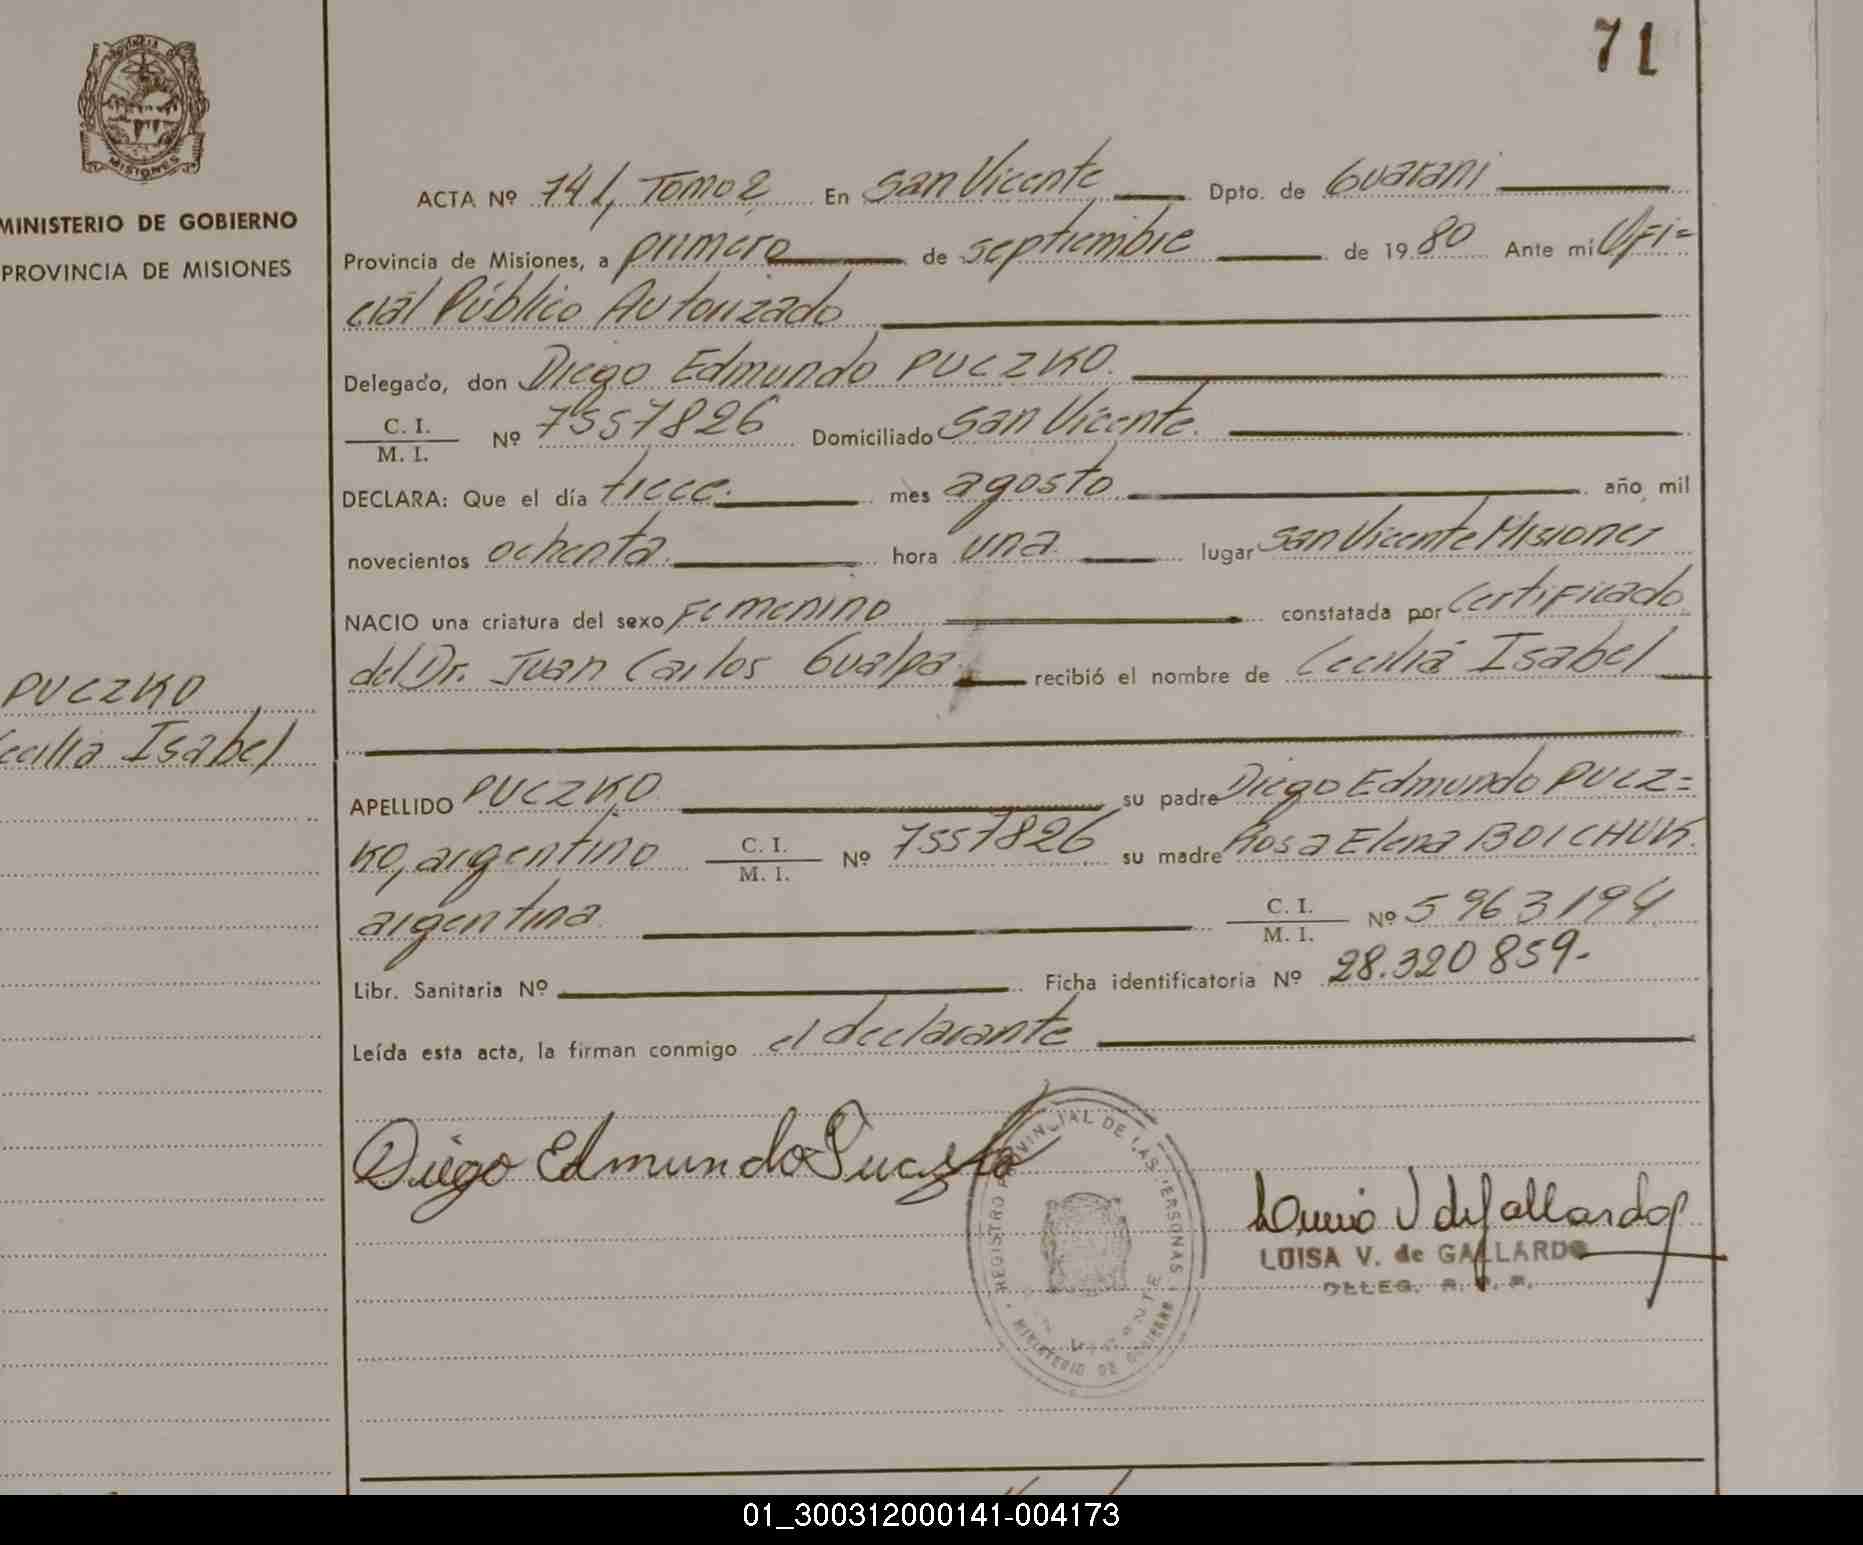 71
PROVINCIA DE
MISIONES
MINISTERIO DE GOBIERNO
PROVINCIA DE MISIONES
PUCZKO
ecilia Isabel
ACTA Nº 741, Tomo 2 En San Vicente Dpto. de Guarani
Provincia de Misiones, a primero de septiembre de 1980 Ante mi Ofi=
cial Público Autorizado
Delegado, don Diego Edmundo PUCZKO.
C. I.
M. I. Nº 7557826 Domiciliado San Vicente.
DECLARA: Que el día trece. mes agosto año mil
novecientos ochenta hora una lugar San Vicente Misiones
NACIO una criatura del sexo Femenino constatada por Certificado
del Dr. Juan Carlos Gualpa recibió el nombre de Cecilia Isabel
APELLIDO PUCZKO su padre Diego Edmundo PUCZ=
KO, argentino C. I.
M. I. Nº 7557826 su madre Rosa Elena BOICHUK.
argentina C. I.
M. I. Nº 5963194
Libr. Sanitaria Nº Ficha identificatoria Nº 28.320859-
Leída esta acta, la firman conmigo el declarante
Diego Edmundo Puczko
REGISTRO PROVINCIAL DE LAS PERSONAS
MINISTERIO DE GOBIERNO
Luisa V de Gallardo
LUISA V. de GALLARDO
DELEG. R. P. P.
01_300312000141-004173